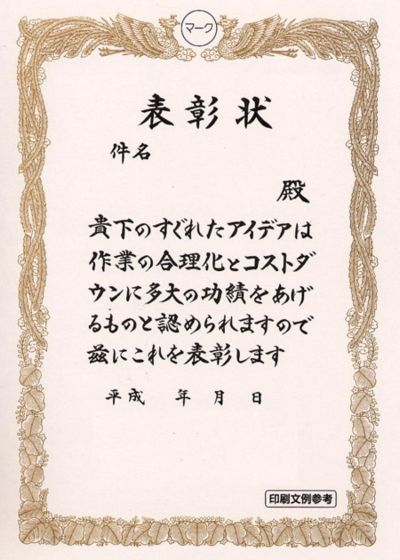 マーク
表彰状
件名
殿
貴下のすぐれたアイデアは
作業の合理化とコストダ
ウンに多大の功績をあげ
るものと認められますので
茲にこれを表彰します
平成 年 月 日
印刷文例参考